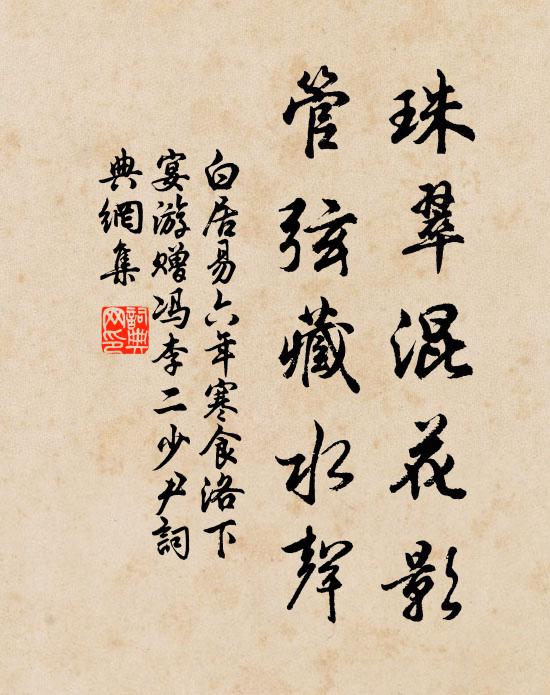 珠翠混花影
管弦藏水聲
白居易六年寒食洛下
宴游赠冯李二少尹詞
典網集
詞典
网印